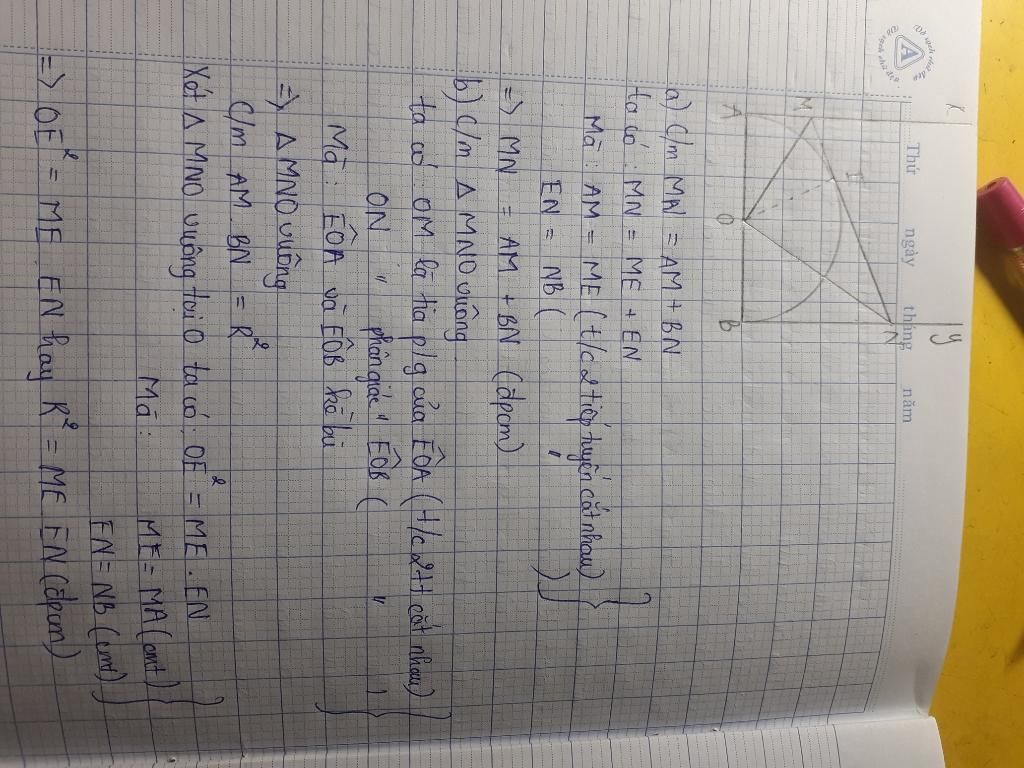 Thứ ngày tháng năm
x
y
M
E
N
A
O
B
a) C/m MN = AM + BN
ta có : MN = ME + EN
Mà : AM = ME ( t/c 2 tiếp tuyến cắt nhau)
EN = NB ( " )
=> MN = AM + BN (đpcm)
b) C/m Δ MNO vuông
ta có : OM là tia p/g của EÔA ( t/c 2tt cắt nhau)
ON " phân giác " EÔB ( " )
Mà : EÔA và EÔB kề bù
=> Δ MNO vuông
C/m AM . BN = R²
Xét Δ MNO vuông tại O ta có : OE² = ME . EN
Mà : ME = MA (cmt)
EN = NB (cmt)
=> OE² = ME . EN hay R² = ME . EN (đpcm)